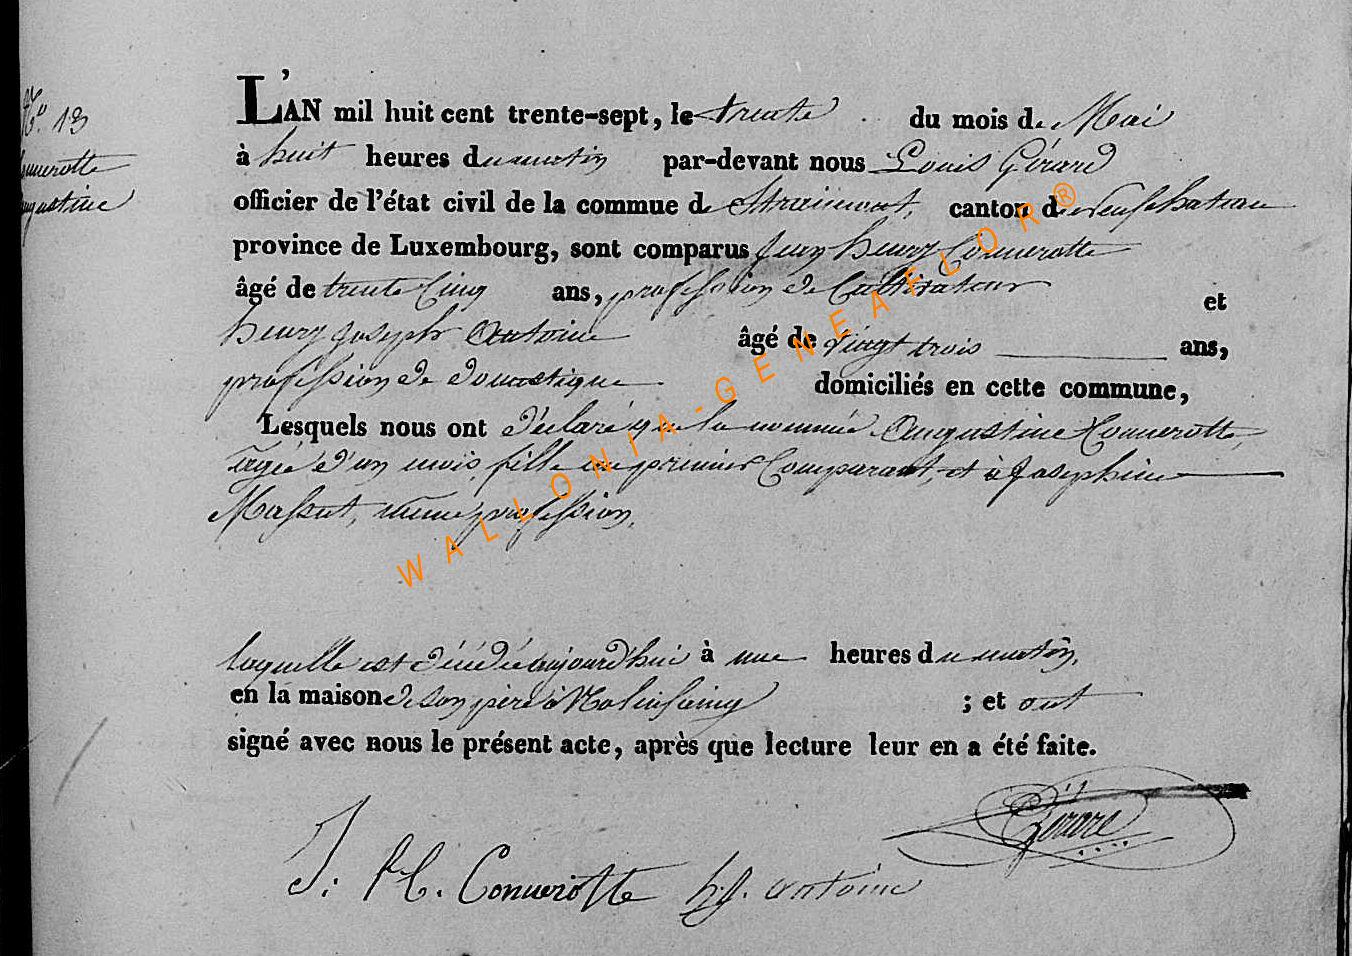 N° 13
Connerotte
Augustine
L'AN mil huit cent trente-sept, le trente du mois de Mai
à huit heures du matin par-devant nous Louis Gérard
officier de l'état civil de la commue de Straimont, canton de neufchateau
province de Luxembourg, sont comparus Jean henry Connerotte
âgé de trente Cinq ans, profession de Cultivateur et
henry Joseph Antoine âgé de vingt trois ans,
profession de domestique domiciliés en cette commune,
Lesquels nous ont déclaré que la nommée Augustine Connerotte,
agée d'un mois, fille du premier Comparant, et à Josephine
Massut, même profession,
laquelle est décédée aujourd'hui à une heures du matin,
en la maison de son père à Malinfaing ; et ont
signé avec nous le présent acte, après que lecture leur en a été faite.
Gérard
J: H. Connerotte h. J. antoine
WALLONIA-GENEAFLOR®